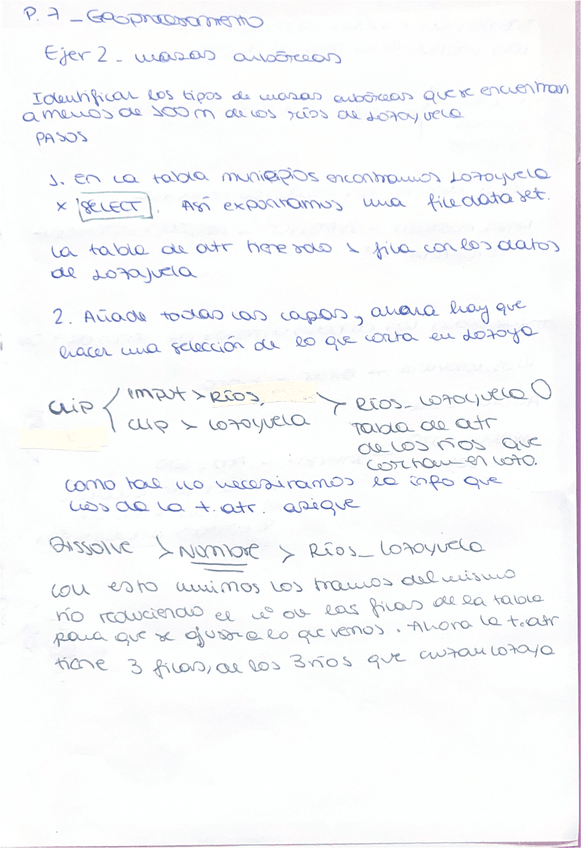 P. 7 _ Geoprocesamiento
Ejer 2 _ masas arbóreas
Identificar los tipos de masas arbóreas que se encuentran
a menos de 100 m de los ríos de Lozoyuela
PASOS
1. En la tabla municipios encontramos Lozoyuela
x SELECT. Así exportamos una file dataset.
La tabla de atr tiene solo 1 fila con los datos
de Lozoyuela
2. Añade todas las capas, ahora hay que
hacer una selección de lo que corta en Lozoya
CLIP INPUT > RÍOS, > RÍOS_Lozoyuela
CLIP > Lozoyuela Tabla de atr
de los ríos que
cortan en Lozo.
como tal no necesitamos la info que
nos da la t. atr. asique
Dissolve > Nombre > Ríos_Lozoyuela
con esto unimos los tramos del mismo
río reduciendo el nº de las filas de la tabla
para que se ajuste a lo que vemos. Ahora la t. atr
tiene 3 filas, de los 3 ríos que cruzan Lozoya